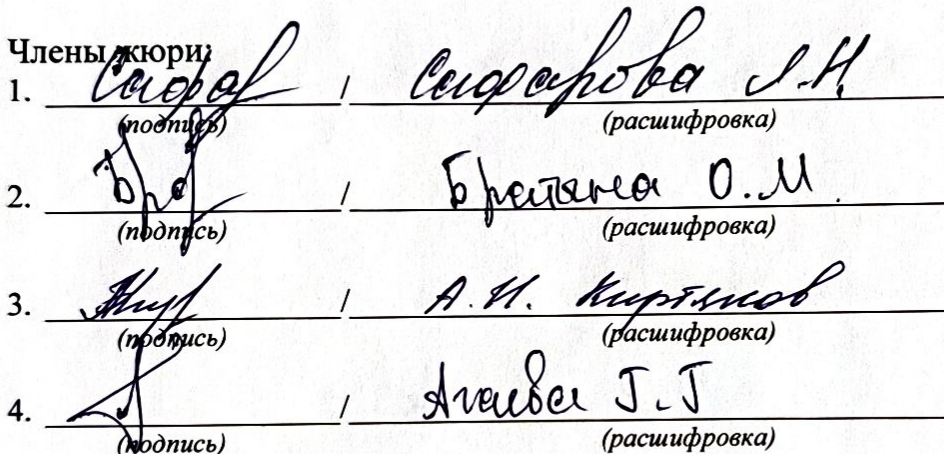 Члены жюри:
1. Сафар / Сафарова Л.Н.
(подпись) (расшифровка)
2. Бра / Братяна О.М.
(подпись) (расшифровка)
3. / А.Н. Киртянов
(подпись) (расшифровка)
4. / Агаева Г.Г
(подпись) (расшифровка)